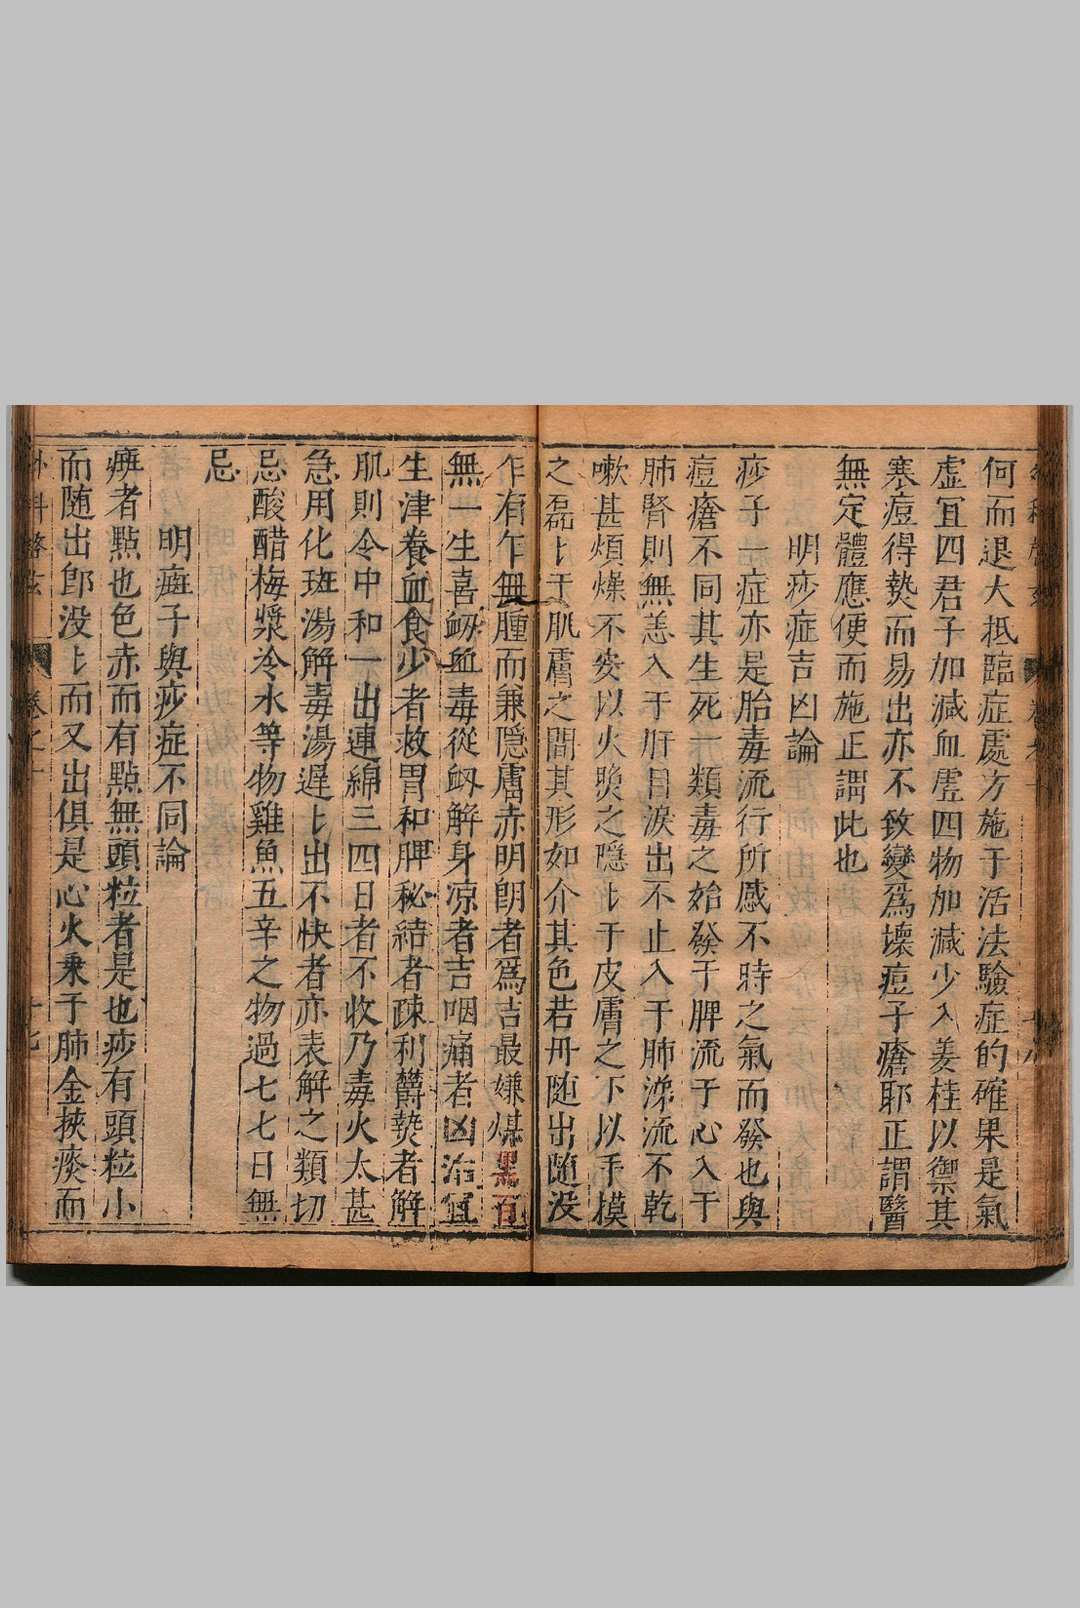 何而退大抵臨症處方施于活法驗症的確果是氣
虛宜四君子加減血虛四物加減少入姜桂以禦其
寒痘得𤍠而易出亦不致變爲壞痘子瘡耶正謂醫
無定體應便而施正謂此也
明痧症吉凶論
痧子一症亦是胎毒流行所感不時之氣而發也與
痘瘡不同其生死一類毒之始發于脾流于心入于
肺腎則無恙入于肝目淚出不止入于肺涕流不乾
嗽甚煩燥不安以火照之隱〻于皮膚之下以手摸
之磊〻于肌膚之間其形如介其色若丹随出随没
乍有乍無腫而兼隱膚赤明朗者爲吉最嫌煤黑百
無一生喜衂血毒從衂解身凉者吉咽痛者凶治宜
生津養血食少者救胃和脾秘結者疎利欝𤍠者解
肌則令中和一出連綿三四日者不收乃毒火太甚
急用化斑湯解毒湯遲〻出不快者亦表解之類切
忌酸醋梅漿冷水等物雞魚五辛之物過七七日無
忌
明㾦子與痧症不同論
㾦者點也色赤而有點無頭粒者是也痧有頭粒小
而随出卽没〻而又出俱是心火乘于肺金挾痰而
卷之十
十七